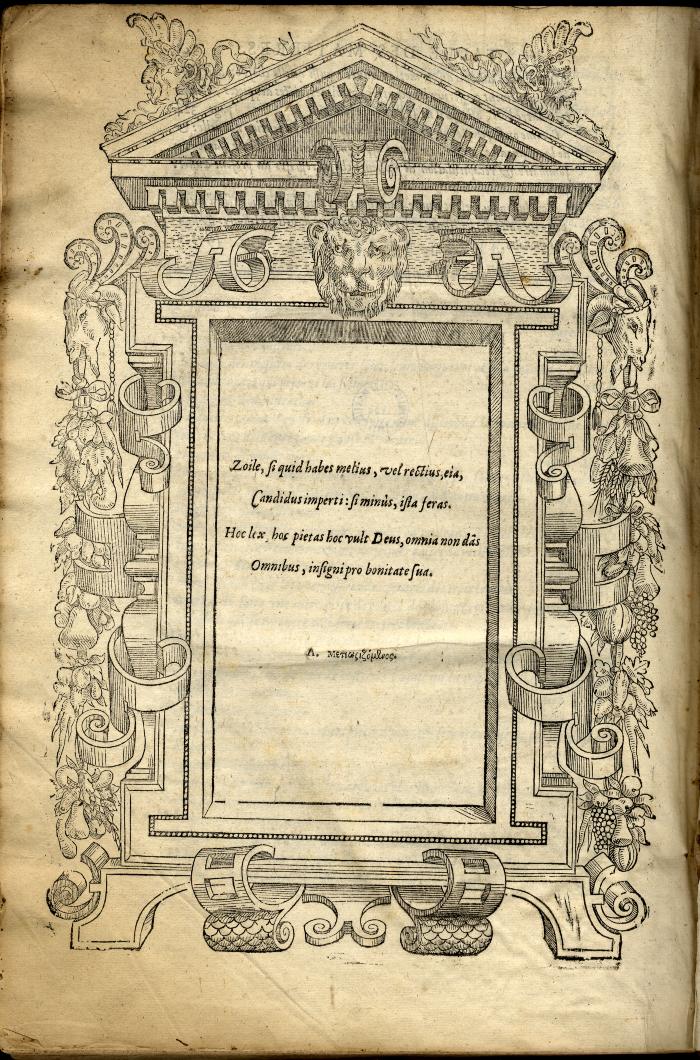 Zoile, si quid habes melius, vel rectius, eia,
Candidus imperti: si minùs, ista feras.
Hoc lex, hoc pietas hoc vult Deus, omnia non dās
Omnibus, insigni pro bonitate sua.
Λ.